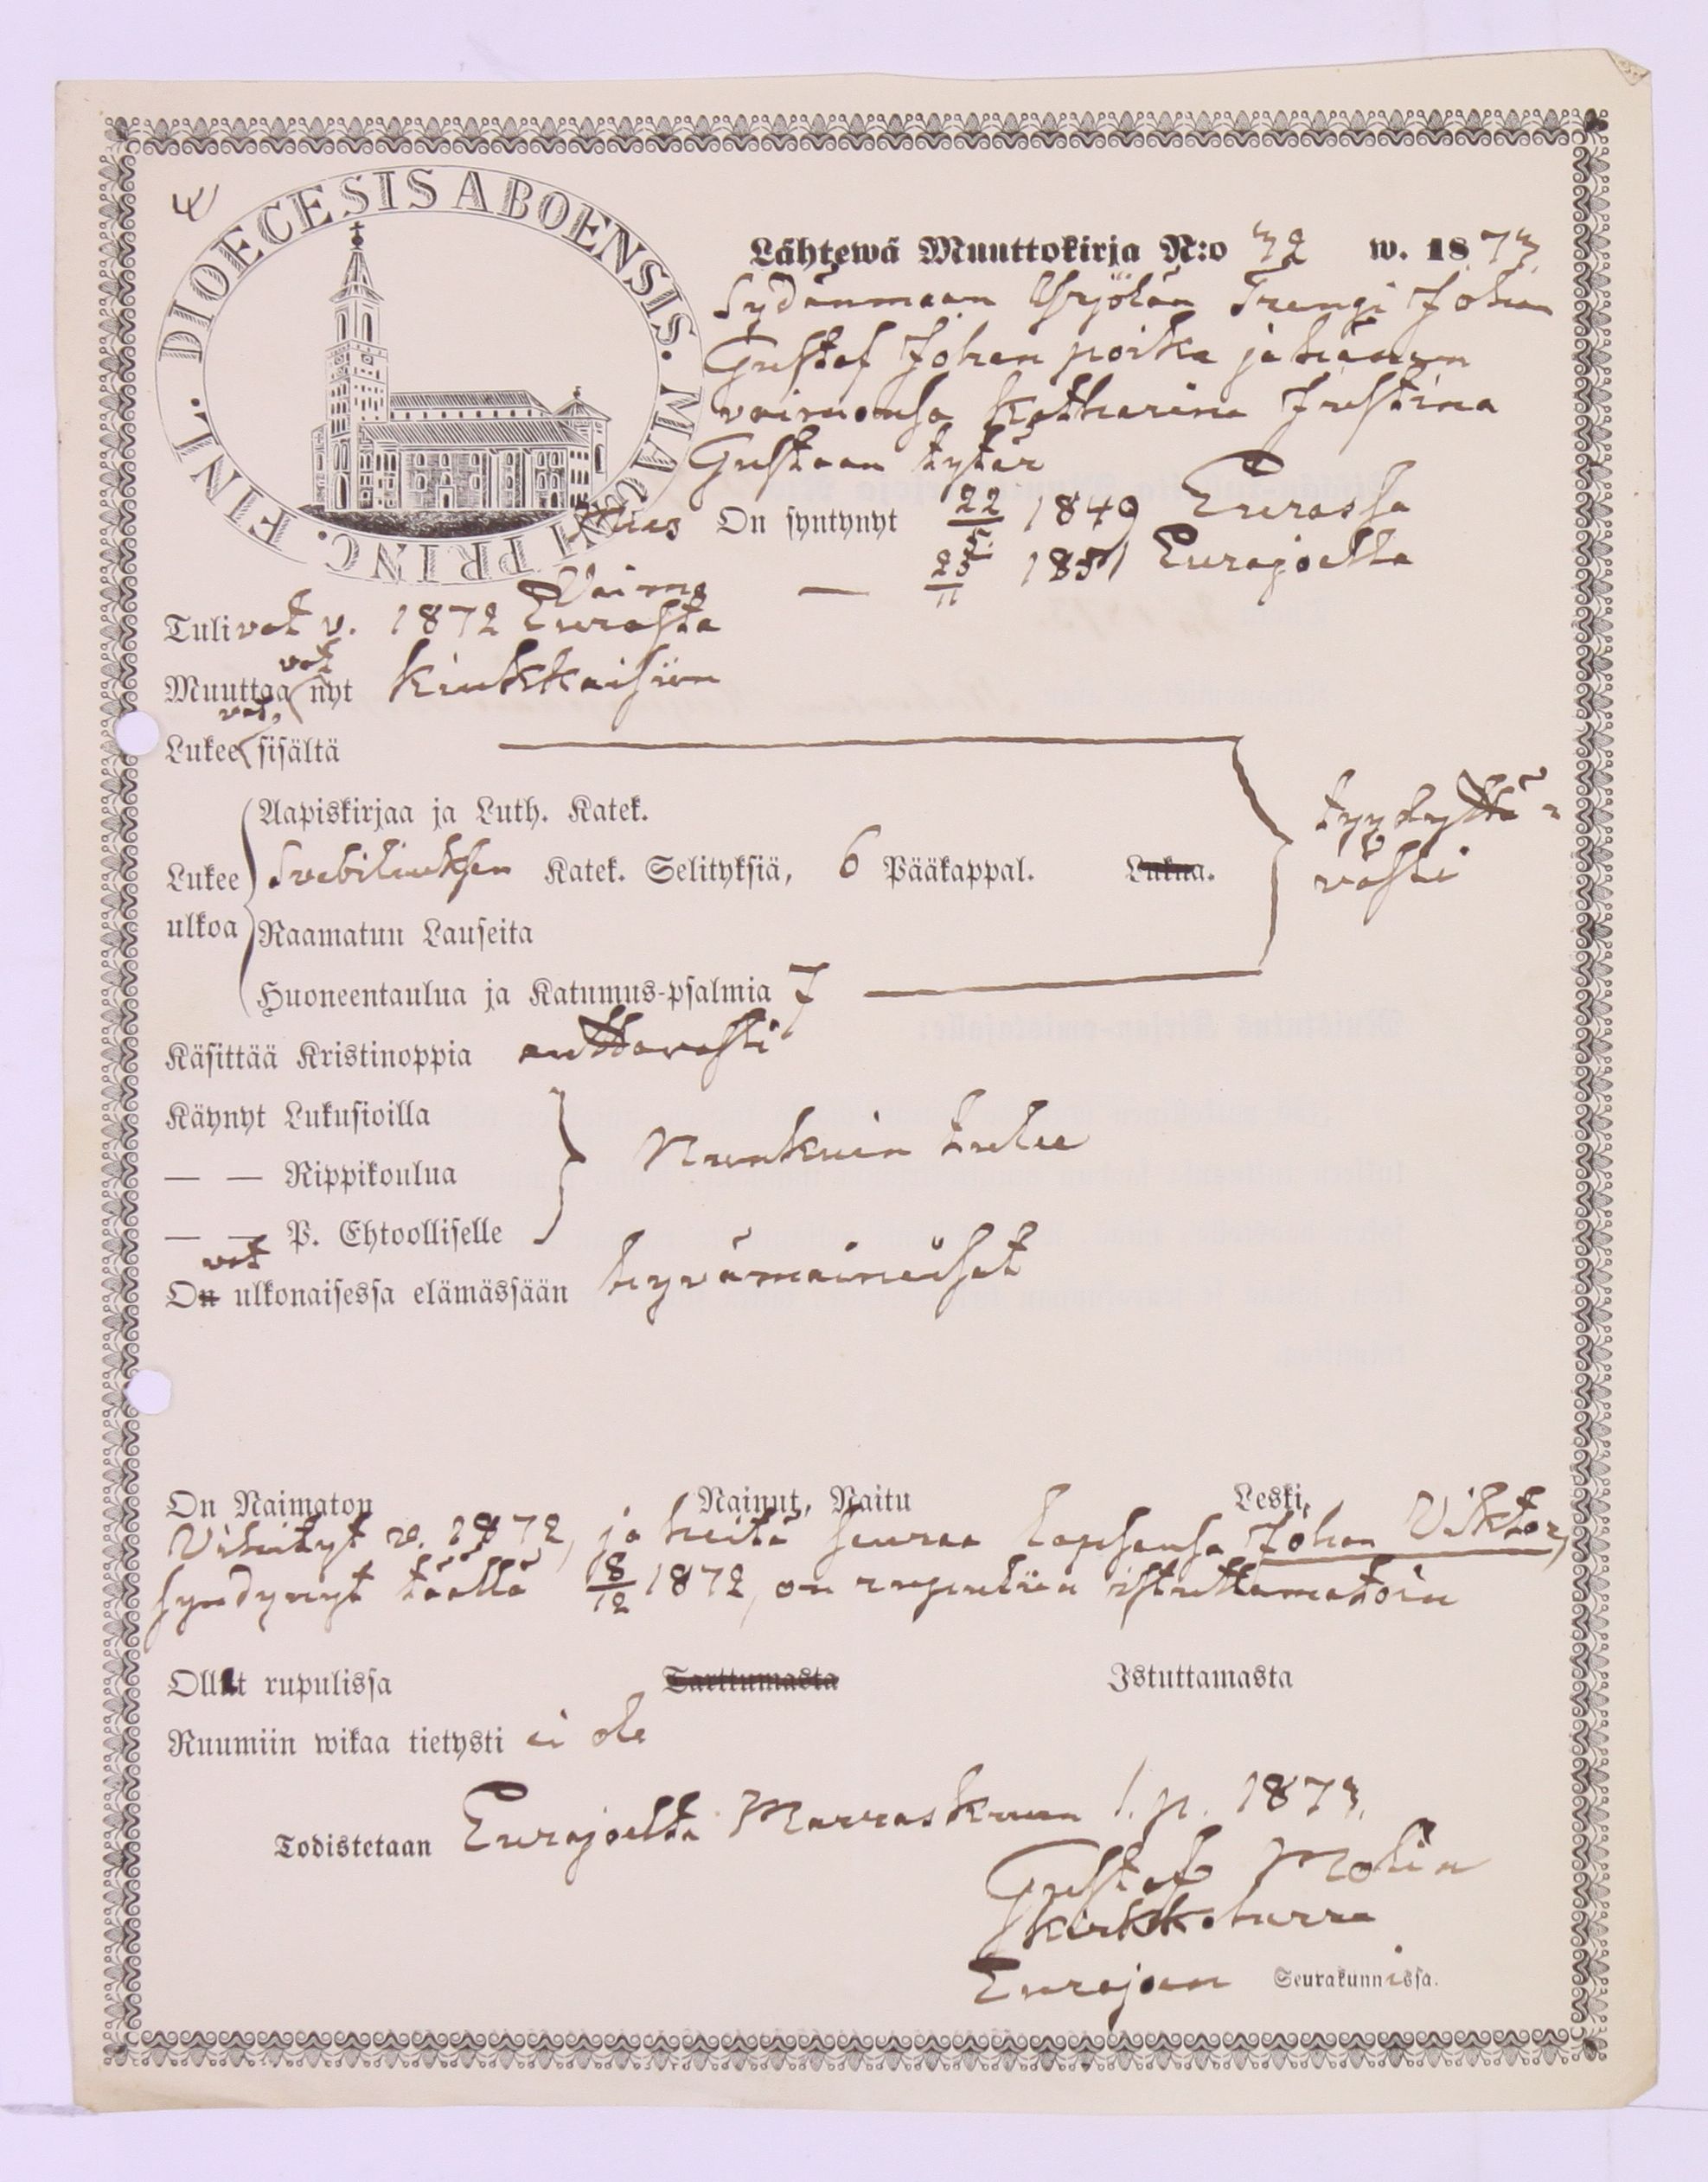 DIOECESIS ABOENSIS. MAGNI PRINC. FINL.
Lähtewä Muuttokirja N:o 32 w. 1873
Sydänmaan Yrjölän Trengi Johan
Gustaf Johan poika ja hänen
vaimonsa Katharina Justina
Gustaan tytär
Mies On syntynyt 22/5 1849 Eurassa
Vaimo — 23/11 1851 Eurajoella
Tulivat v. 1872 Eurasta
Muuttaavat nyt Kiukkaisiin
Lukeevat sisältä
Aapiskirjaa ja Luth. Katek.
Lukee ulkoa Svebiliuksen Katek. Selityksiä, 6 Pääkappal. Lukua. tyydyttä=
västi
Raamatun Lauseita
Huoneentaulua ja Katumus-psalmia 7
Käsittää Kristinoppia auttavasti
Käynyt Lukusioilla
— — Rippikoulua Niinkuin tulee
— — P. Ehtoolliselle
Ovat ulkonaisessa elämässään hyvämaineiset
On Naimaton Nainut, Naitu Leski,
Vihityt v. 1872, ja heitä seuraa lapsensa Johan Viktor,
syndynyt täällä 8/12 1872, on rupuliin istuttamatoin
Ollut rupulissa Tarttumasta Istuttamasta
Ruumiin wikaa tietysti ei ole
Todistetaan Eurajoella Marraskuun 1. p. 1873.
Gustaf Molin
Kirkkoherra
Eurajoen Seurakunnissa.